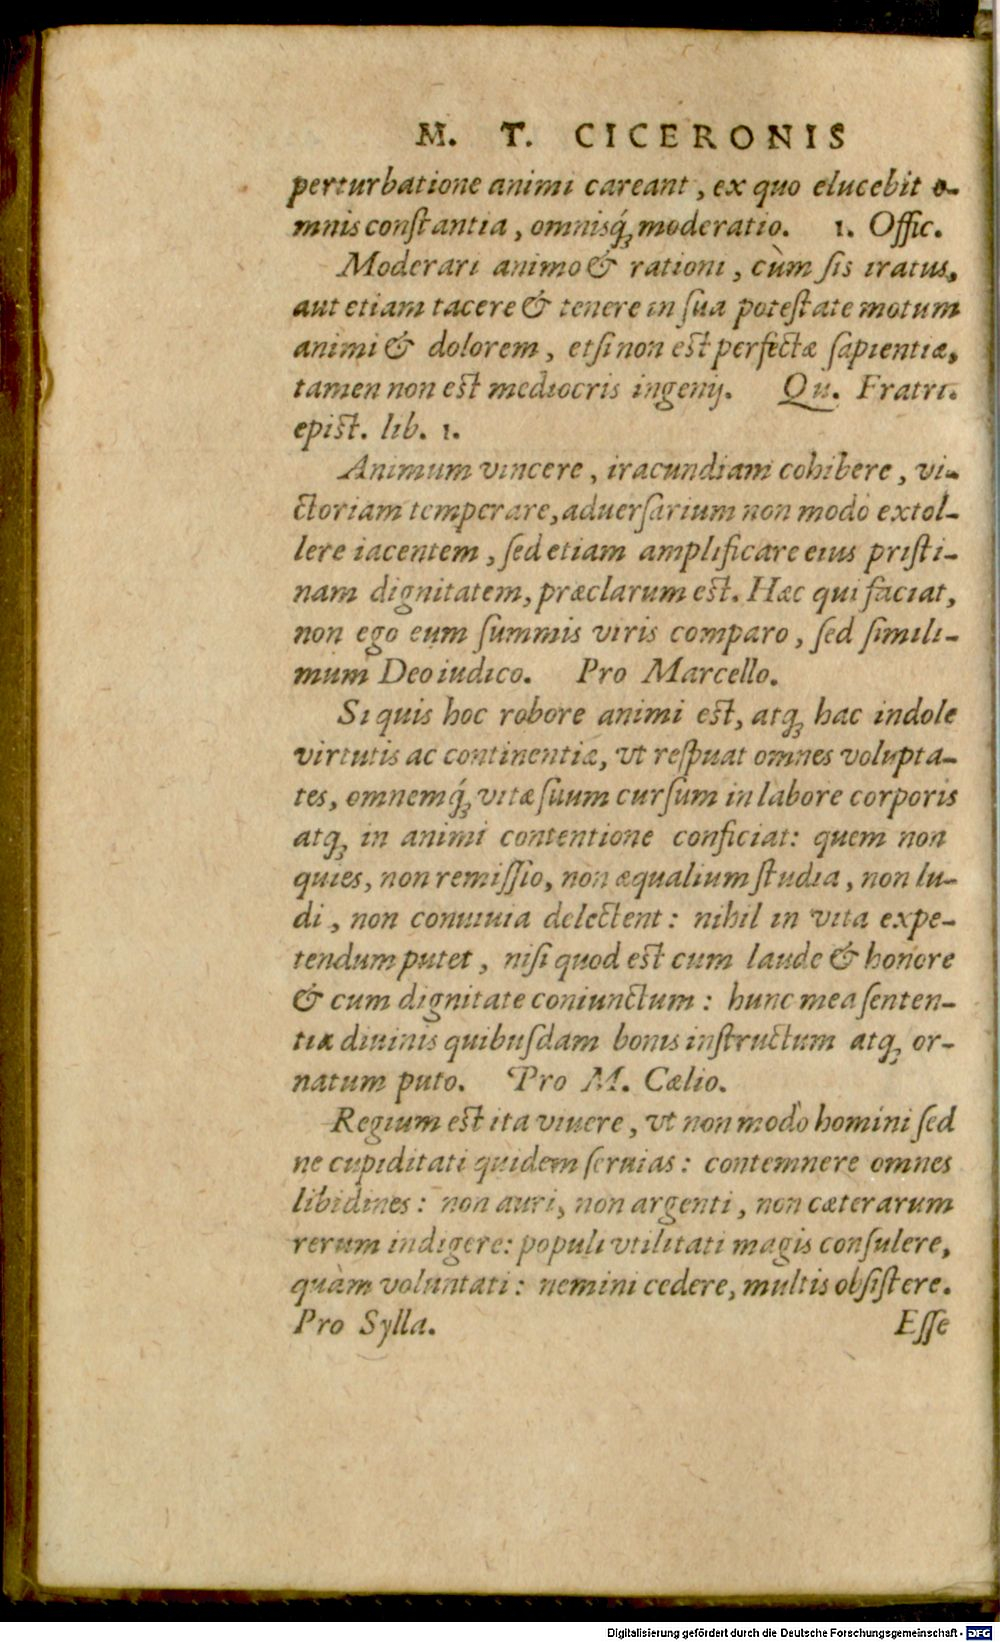 M. T. CICERONIS
perturbatione animi careant, ex quo elucebit o-
mnis constantia, omnisq́; moderatio. 1. Offic.
Moderari animo & rationi, cùm sis iratus,
aut etiam tacere & tenere in sua potestate motum
animi & dolorem, etsi non est perfectæ sapientiæ,
tamen non est mediocris ingenij. Qu. Fratri.
epist. lib. 1.
Animum vincere, iracundiam cohibere, vi-
ctoriam temperare, aduersarium non modò extol-
lere iacentem, sed etiam amplificare eius pristi-
nam dignitatem, præclarum est. Hæc qui faciat,
non ego eum summis viris comparo, sed simili-
mum Deo iudico. Pro Marcello.
Si quis hoc robore animi est, atq; hac indole
virtutis ac continentiæ, vt respuat omnes volupta-
tes, omnemq́; vitæ suum cursum in labore corporis
atq; in animi contentione conficiat: quem non
quies, non remissio, non æqualium studia, non lu-
di, non conuiuia delectent: nihil in vita expe-
tendum putet, nisi quod est cum laude & honore
& cum dignitate coniunctum: hunc mea senten-
tia diuinis quibusdam bonis instructum atq; or-
natum puto. Pro M. Cælio.
Regium est ita viuere, vt non modò homini sed
ne cupiditati quidem seruias: contemnere omnes
libidines: non auri, non argenti, non cæterarum
rerum indigere: populi vtilitati magis consulere,
quàm voluntati: nemini cedere, multis obsistere.
Pro Sylla. Esse
Digitalisierung gefördert durch die Deutsche Forschungsgemeinschaft - DFG